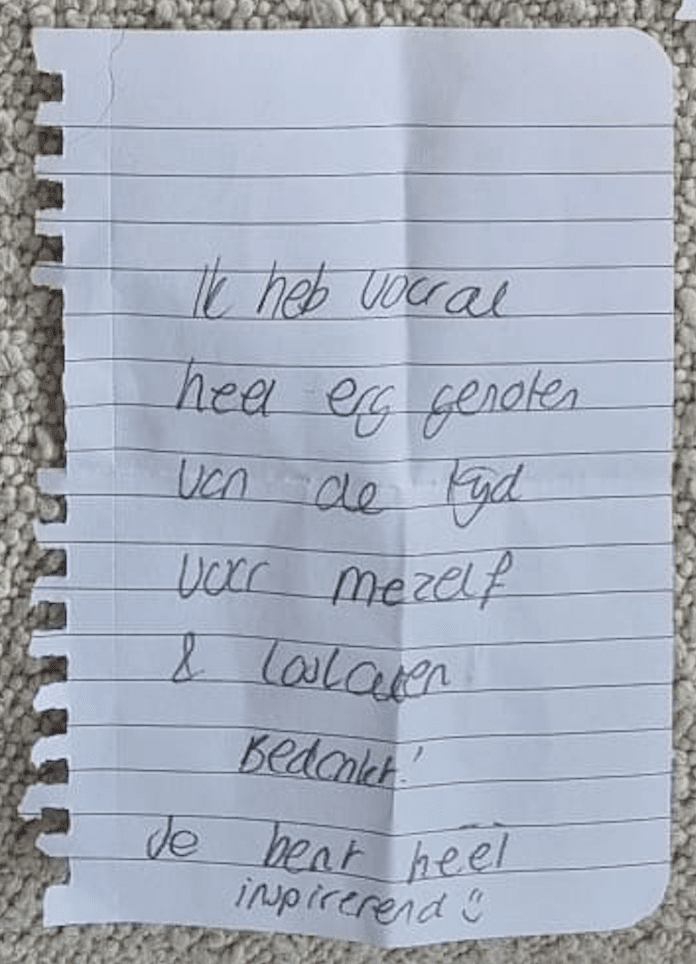 Ik heb vooral
heel erg genoten
van de tijd
voor mezelf
& loslaten
Bedankt!
Je bent heel
inspirerend ☺